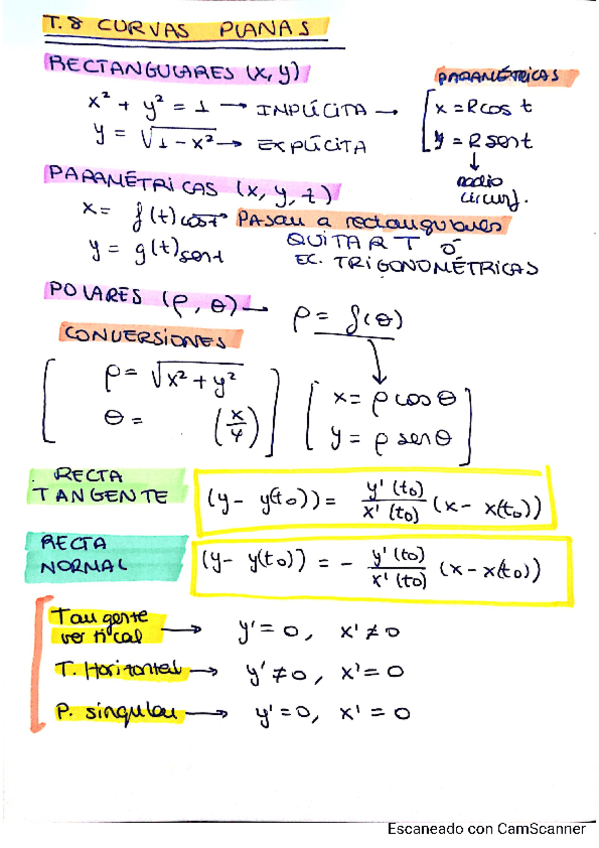 T.8 CURVAS PLANAS
RECTANGULARES (x, y)
PARAMÉTRICAS
x² + y² = 1 → IMPLÍCITA →
x = R cos t
y = √1 - x² → EXPLÍCITA
y = R sent
↓
radio
circunf.
PARAMÉTRICAS (x, y, t)
x = f(t) cost → PASAN a rectangulares
y = g(t) sent QUITAR T Ó
EC. TRIGONOMÉTRICAS
POLARES (ρ, θ) → ρ = f(θ)
CONVERSIONES
ρ = √x² + y²
θ = (x/y)
x = ρ cos θ
y = ρ sen θ
RECTA
TANGENTE
(y - y(t₀)) = y'(t₀)/x'(t₀) (x - x(t₀))
RECTA
NORMAL
(y - y(t₀)) = - y'(t₀)/x'(t₀) (x - x(t₀))
Tangente
vertical → y' = 0, x' ≠ 0
T. Horizontal → y' ≠ 0, x' = 0
P. singular → y' = 0, x' = 0
Escaneado con CamScanner